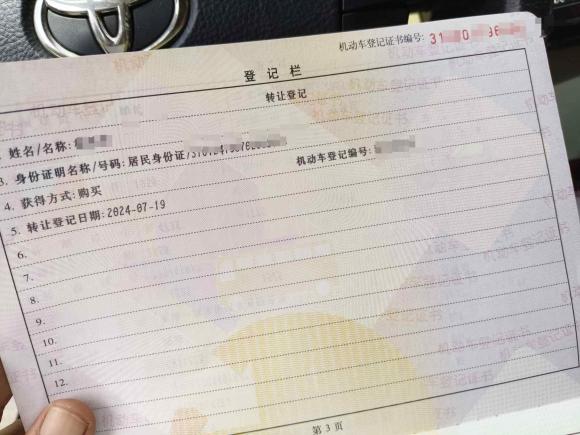 机动车登记证书编号:
登记栏
转让登记
姓名/名称:
3. 身份证明名称/号码:居民身份证/
机动车登记编号:
4. 获得方式:购买
5. 转让登记日期:2024-07-19
6.
7.
8.
9.
10.
11.
12.
第3页